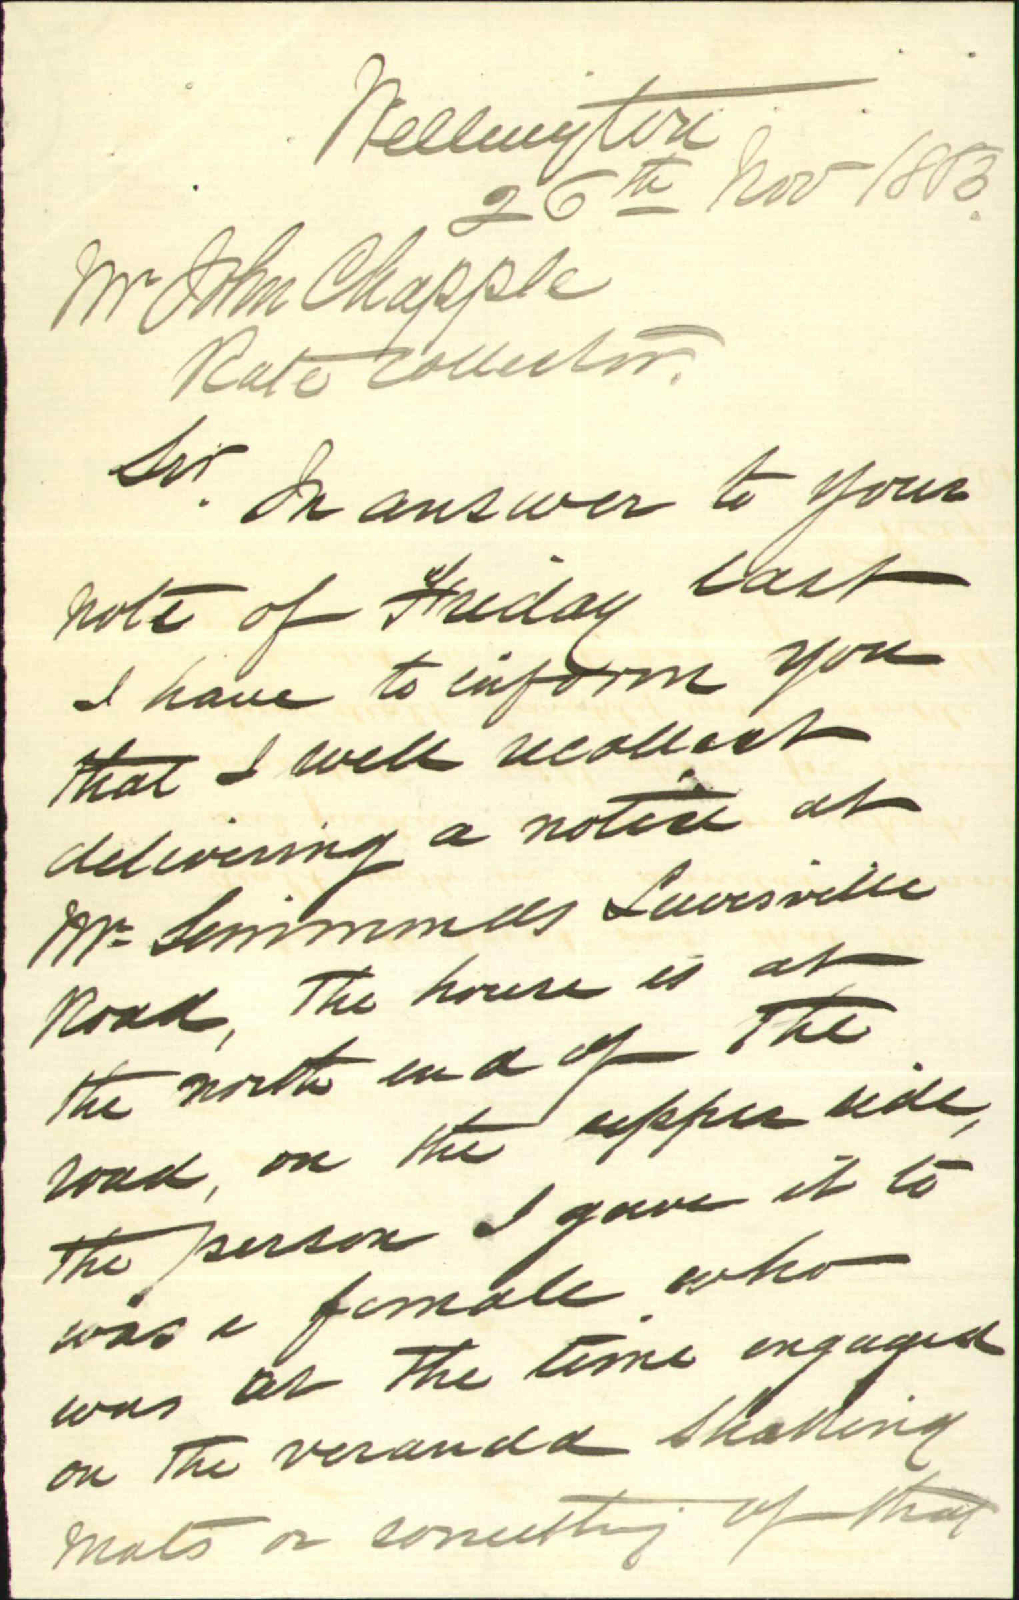 Wellington
26th Nov 1883.
Mr John Chapple
Rate Collector.
Sir. In answer to your
note of Friday last
I have to inform you
that I well recollect
delivering a notice at
Mr Simmonds Lewisville
Road, the house is at
the north end of the
road, on the upper side,
the person I gave it to
was a female who
was at the time engaged
on the veranda Shaking
mats or something of that